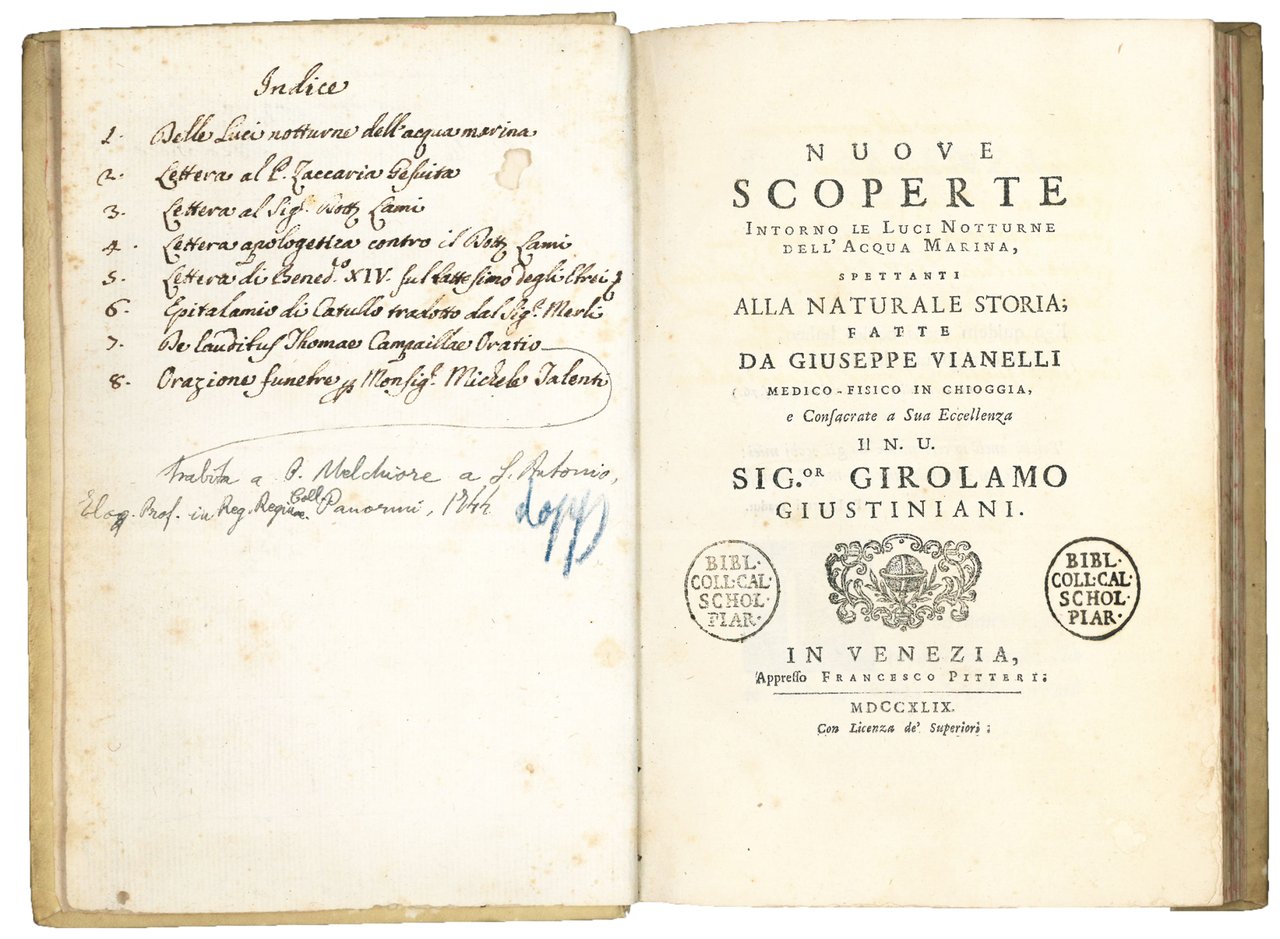 Indice
1. Delle Luci notturne dell'acqua marina
2. Lettera al P. Zaccaria Gesuita
3. Lettera al Sig.r Dott. Lami
4. Lettera apologetica contro il Dott. Lami
5. Lettera di Bened.o XIV. sul battesimo degli Ebrei
6. Epitalamio di Catullo tradotto dal Sig.r Merli
7. De laudibus Thomae Campaillae Oratio
8. Orazione funebre Monsig.r Michele Talenti
a P. Melchiore a S. Antonio,
Eloq. Prof. in Reg. Coll. Panormi, 1844
NUOVE
SCOPERTE
INTORNO LE LUCI NOTTURNE
DELL'ACQUA MARINA,
SPETTANTI
ALLA NATURALE STORIA;
FATTE
DA GIUSEPPE VIANELLI
MEDICO-FISICO IN CHIOGGIA,
e Consacrate a Sua Eccellenza
Il N. U.
SIG.OR GIROLAMO
GIUSTINIANI.
BIBL·
COLL:CAL·
SCHOL·
PIAR·
BIBL·
COLL:CAL·
SCHOL·
PIAR·
IN VENEZIA,
Appresso FRANCESCO PITTERI:
MDCCXLIX.
Con Licenza de' Superiori: